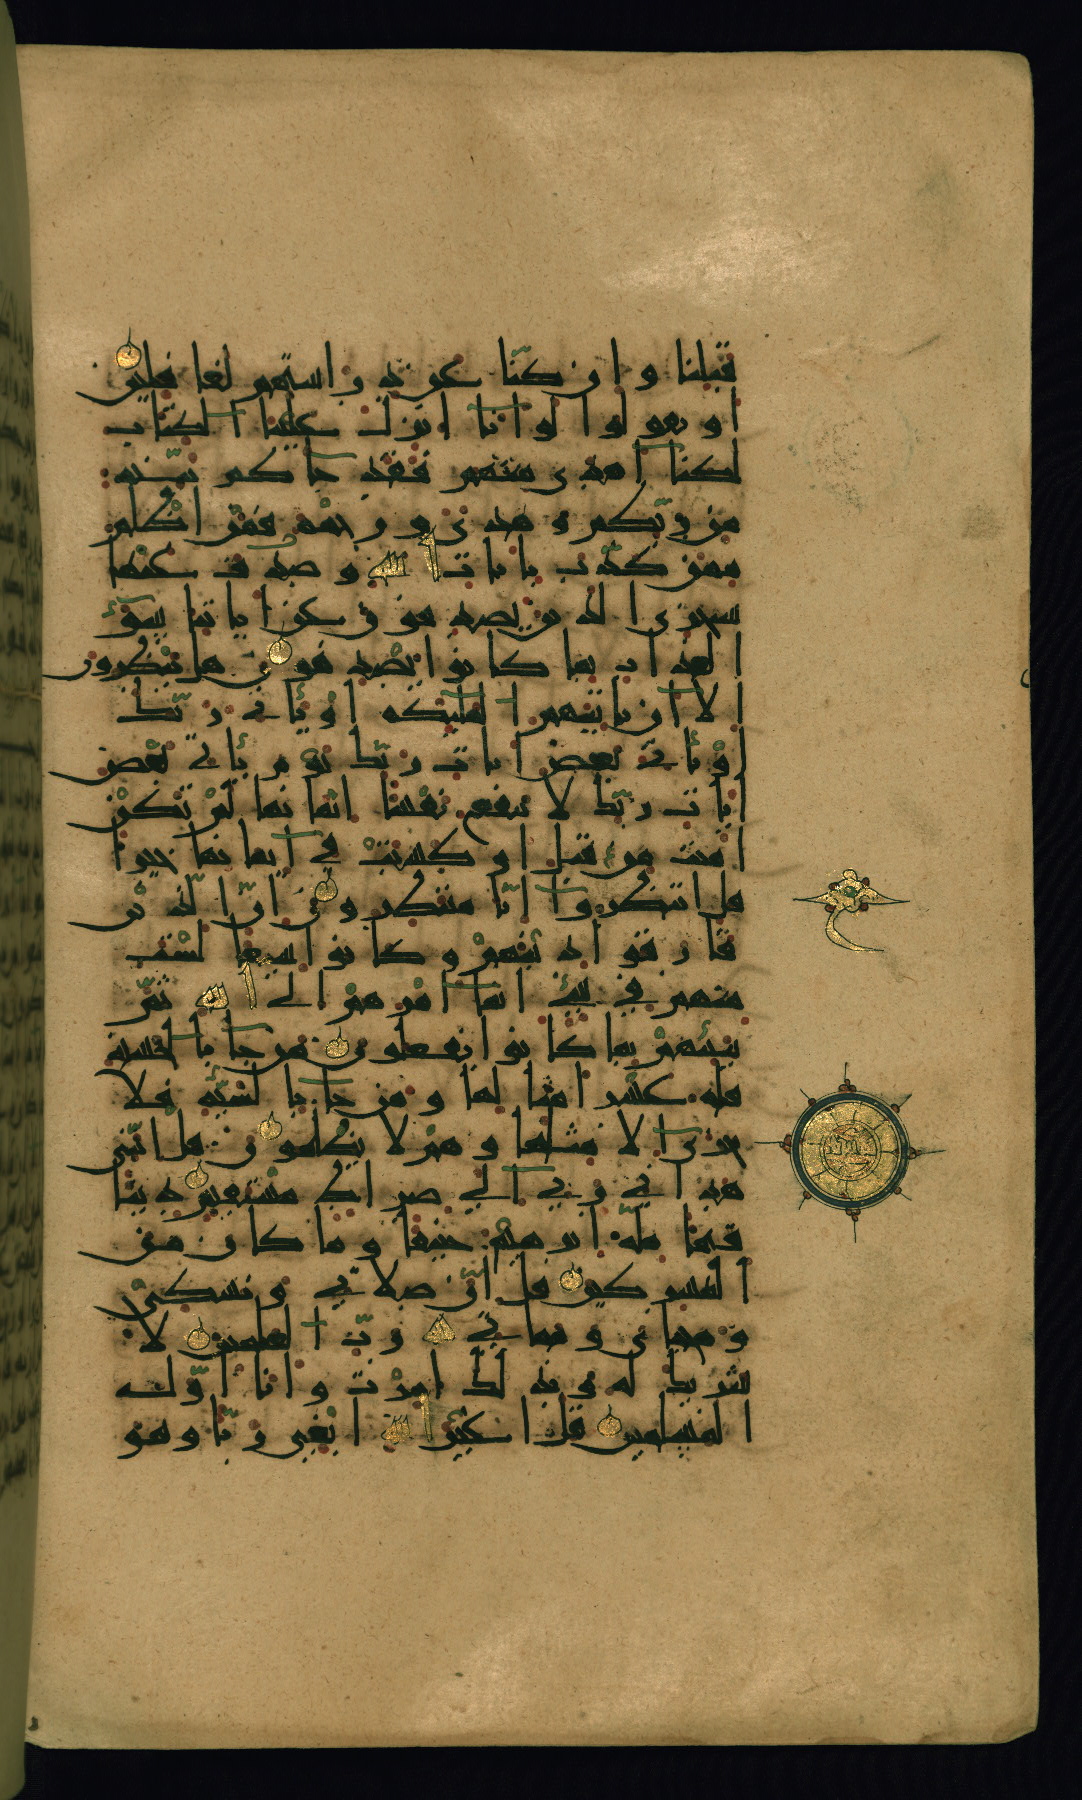 قبلنا وان كنا عن دراستهم لغافلين
او تقولوا لو انا انزل علينا الكتاب
لكنا اهدى منهم فقد جاكم بينة
من ربكم وهدى ورحمة فمن اظلم
ممن كذب بايات الله وصدف عنها
سنجزى الذين يصدفون عن اياتنا سوء
العذاب بما كانوا يصدفون هل ينظرون
الا ان ياتيهم الملئكة او ياتي ربك
او ياتي بعض ايات ربك يوم ياتي بعض
ايات ربك لا ينفع نفسا ايمانها لم تكن
امنت من قبل او كسبت في ايمانها خيرا
قل انتظروا انا منتظرون ان الذين
فارقوا دينهم وكانوا شيعا لست
منهم في شيء انما امرهم الى الله ثم
ينبئهم بما كانوا يفعلون من جا بالحسنة
فله عشر امثالها ومن جا بالسيئة فلا
يجزى الا مثلها وهم لا يظلمون قل انني
هداني ربي الى صراط مستقيم دينا
قيما ملة ابرهيم حنيفا وما كان من
المشركين قل ان صلاتي ونسكي
ومحياي ومماتي لله رب العلمين لا
شريك له وبذلك امرت وانا اول
المسلمين قل اغير الله ابغي ربا وهو